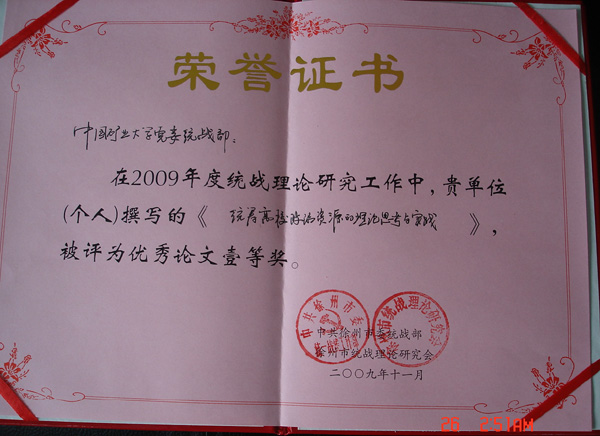 荣誉证书
中国矿业大学党委统战部：
在2009年度统战理论研究工作中，贵单位
(个人)撰写的《统领高校政治资源的理论思考与实践》，
被评为优秀论文壹等奖。
中共徐州市委统战部
徐州市统战理论研究会
二〇〇九年十一月
26 2:51AM